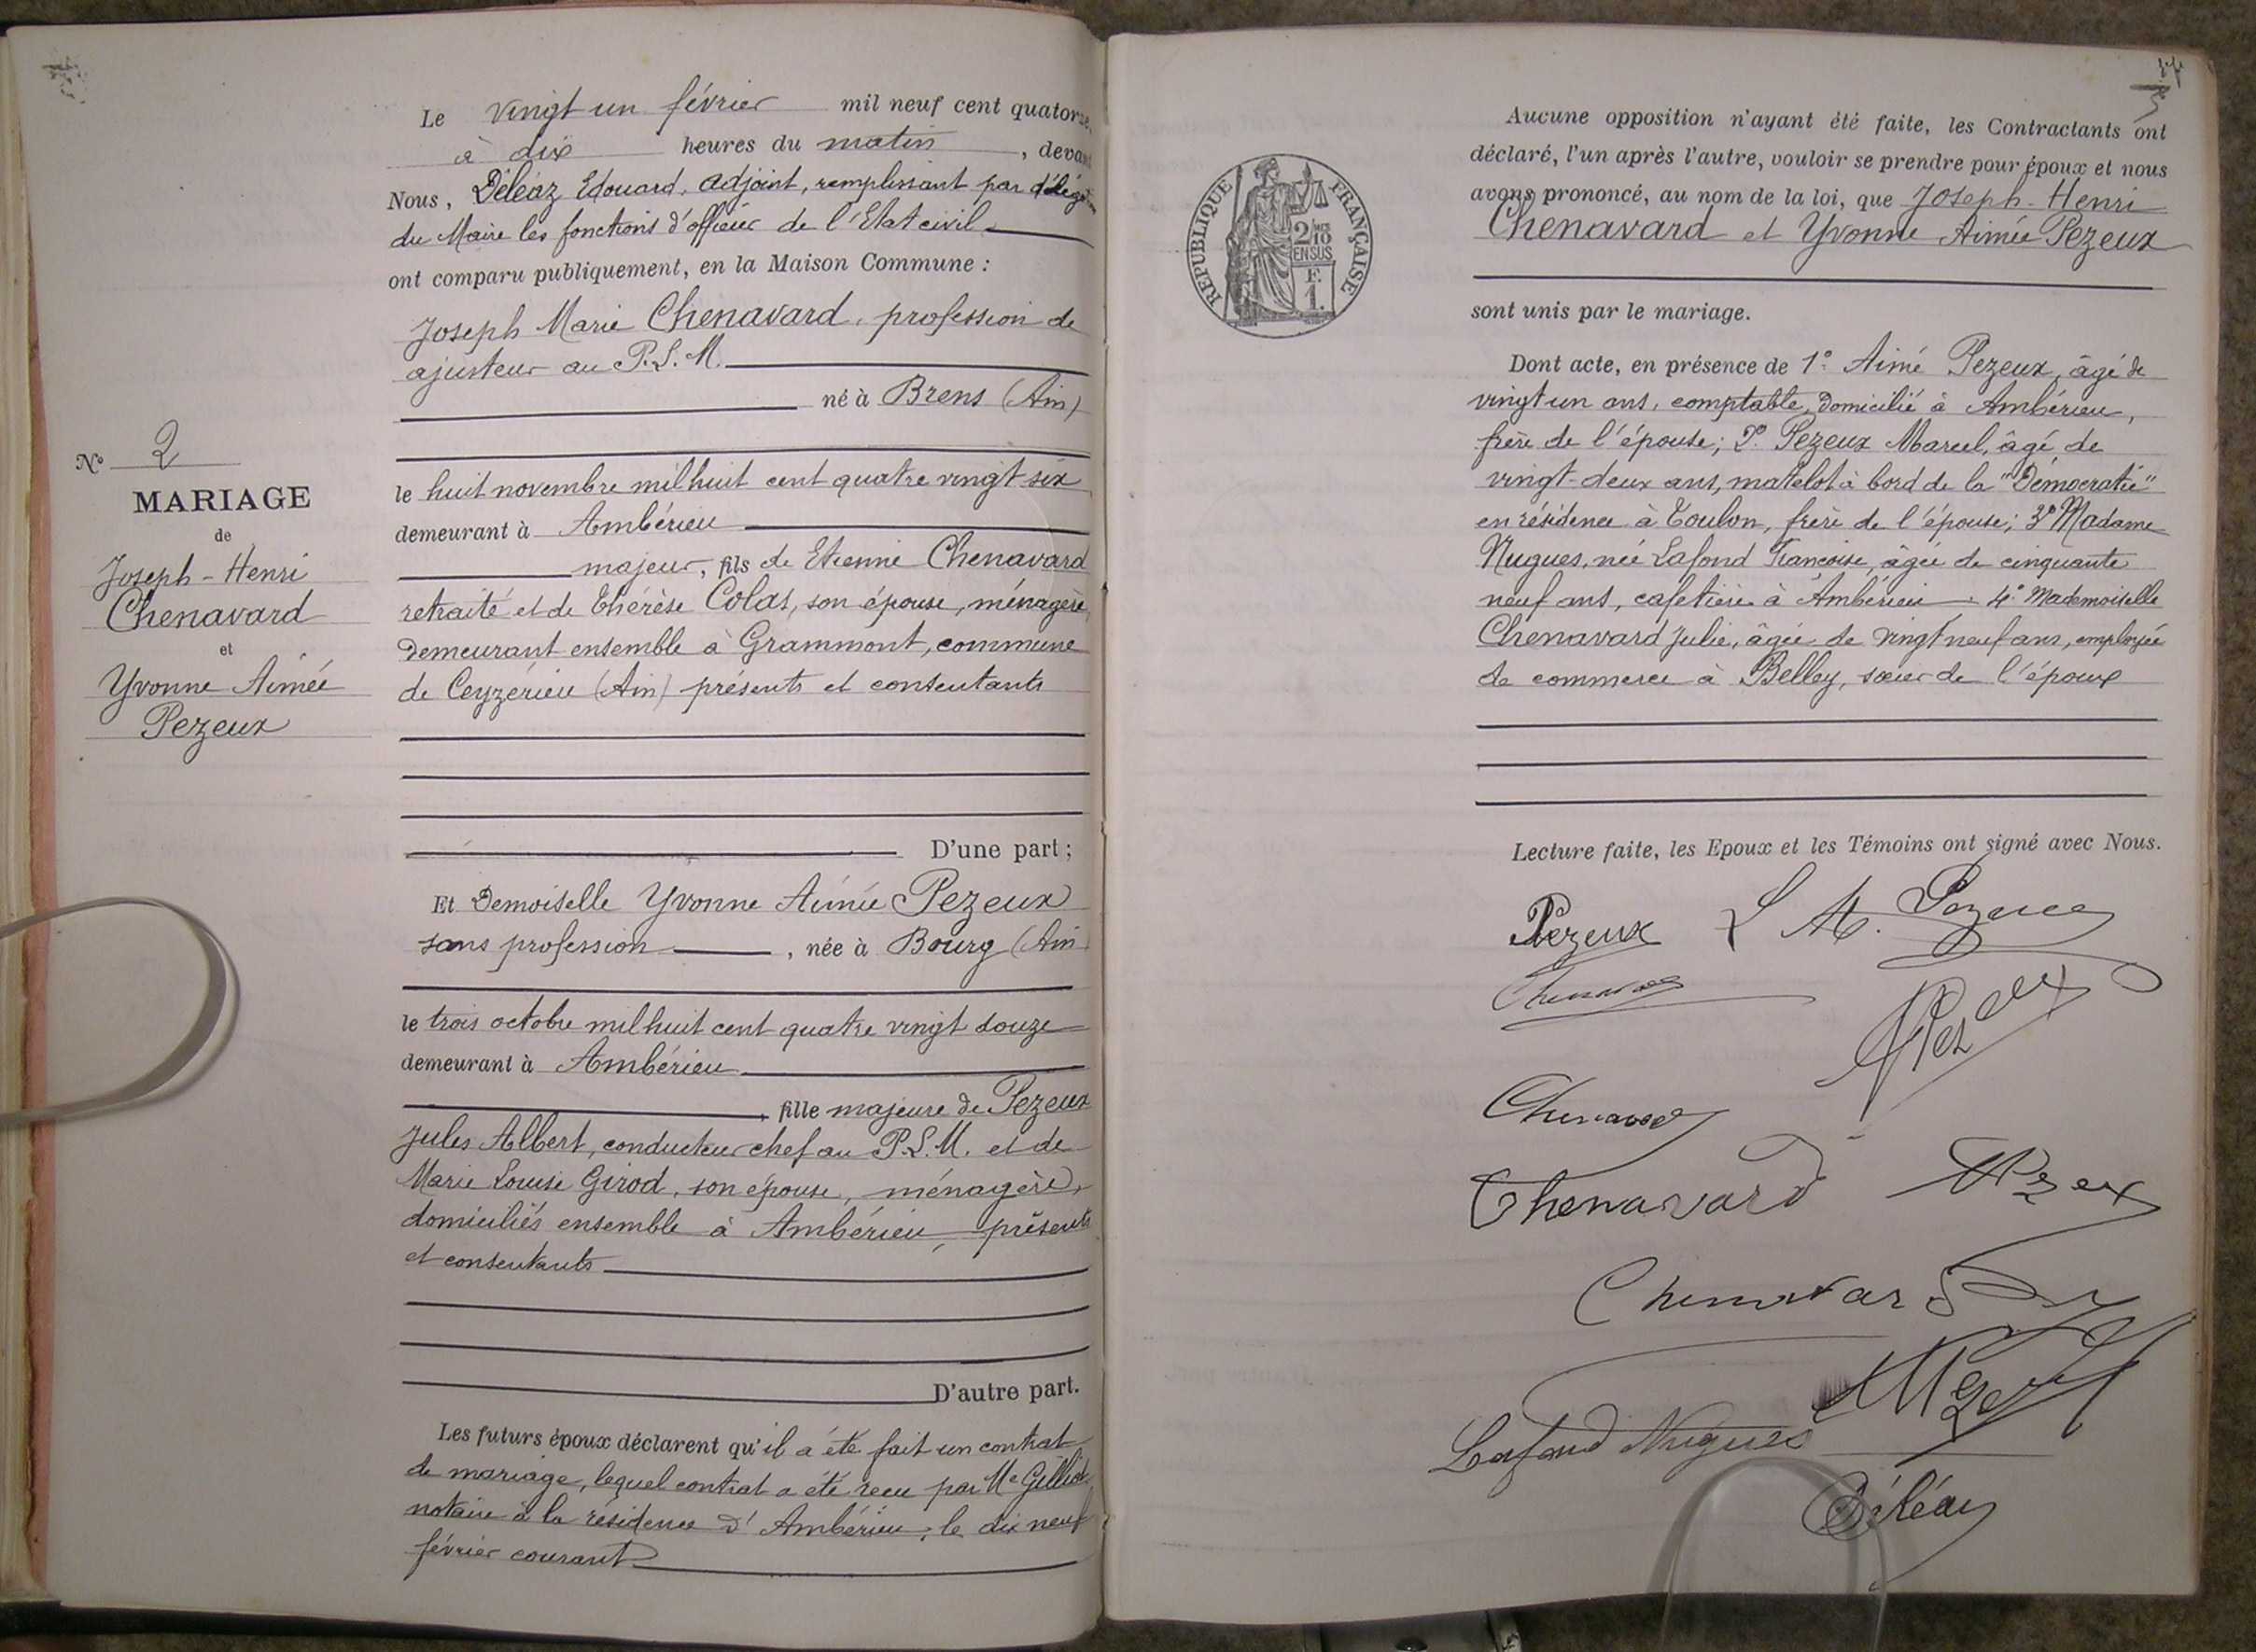 Le vingt un février mil neuf cent quatorze,
à dix heures du matin, devant
Nous, Déléaz Edouard, adjoint, remplissant par délég
du Maire les fonctions d'officier de l'Etat civil
ont comparu publiquement, en la Maison Commune :
Joseph Marie Chenavard, profession de
ajusteur au P.L.M.
né à Brens (Ain)
le huit novembre mil huit cent quatre vingt six
demeurant à Ambérieu
majeur, fils de Etienne Chenavard
retraité et de Thérèse Colas, son épouse, ménagère,
demeurant ensemble à Grammont, commune
de Ceyzérieu (Ain) présents et consentants
D'une part ;
Et Demoiselle Yvonne Aimée Pezeux
sans profession, née à Bourg (Ain
le trois octobre mil huit cent quatre vingt douze
demeurant à Ambérieu
fille majeure de Pezeux
Jules Albert, conducteur chef au P.L.M. et de
Marie Louise Girod, son épouse, ménagère,
domiciliés ensemble à Ambérieu, présents
et consentants
D'autre part.
Les futurs époux déclarent qu'il a été fait un contrat
de mariage, lequel contrat a été recu par Me Gilliot
notaire à la résidence d'Ambérieu, le dix neuf
février courant
N° 2
MARIAGE
de
Joseph-Henri
Chenavard
et
Yvonne Aimée
Pezeux
RÉPUBLIQUE FRANÇAISE
2/10
EN SUS
F.
1.
Aucune opposition n'ayant été faite, les Contractants ont
déclaré, l'un après l'autre, vouloir se prendre pour époux et nous
avons prononcé, au nom de la loi, que Joseph-Henri
Chenavard et Yvonne Aimée Pezeux
sont unis par le mariage.
Dont acte, en présence de 1° Aimé Pezeux, âgé de
vingt un ans, comptable, domicilié à Ambérieu,
frère de l'épouse; 2° Pezeux Marcel, âgé de
vingt-deux ans, matelot à bord de la "Démocratie"
en résidence à Toulon, frère de l'épouse; 3° Madame
Nugues, née Lafond Francoise, âgée de cinquante
neuf ans, cafetière à Ambérieu. 4° Mademoiselle
Chenavard Julie, âgée de vingt neuf ans, employée
de commerce à Belley, sœur de l'époux
Lecture faite, les Epoux et les Témoins ont signé avec Nous.
Pezeux
Chenavard
Chenavard
Chenavard
Chenavard
Lafond Nugues
Déléaz